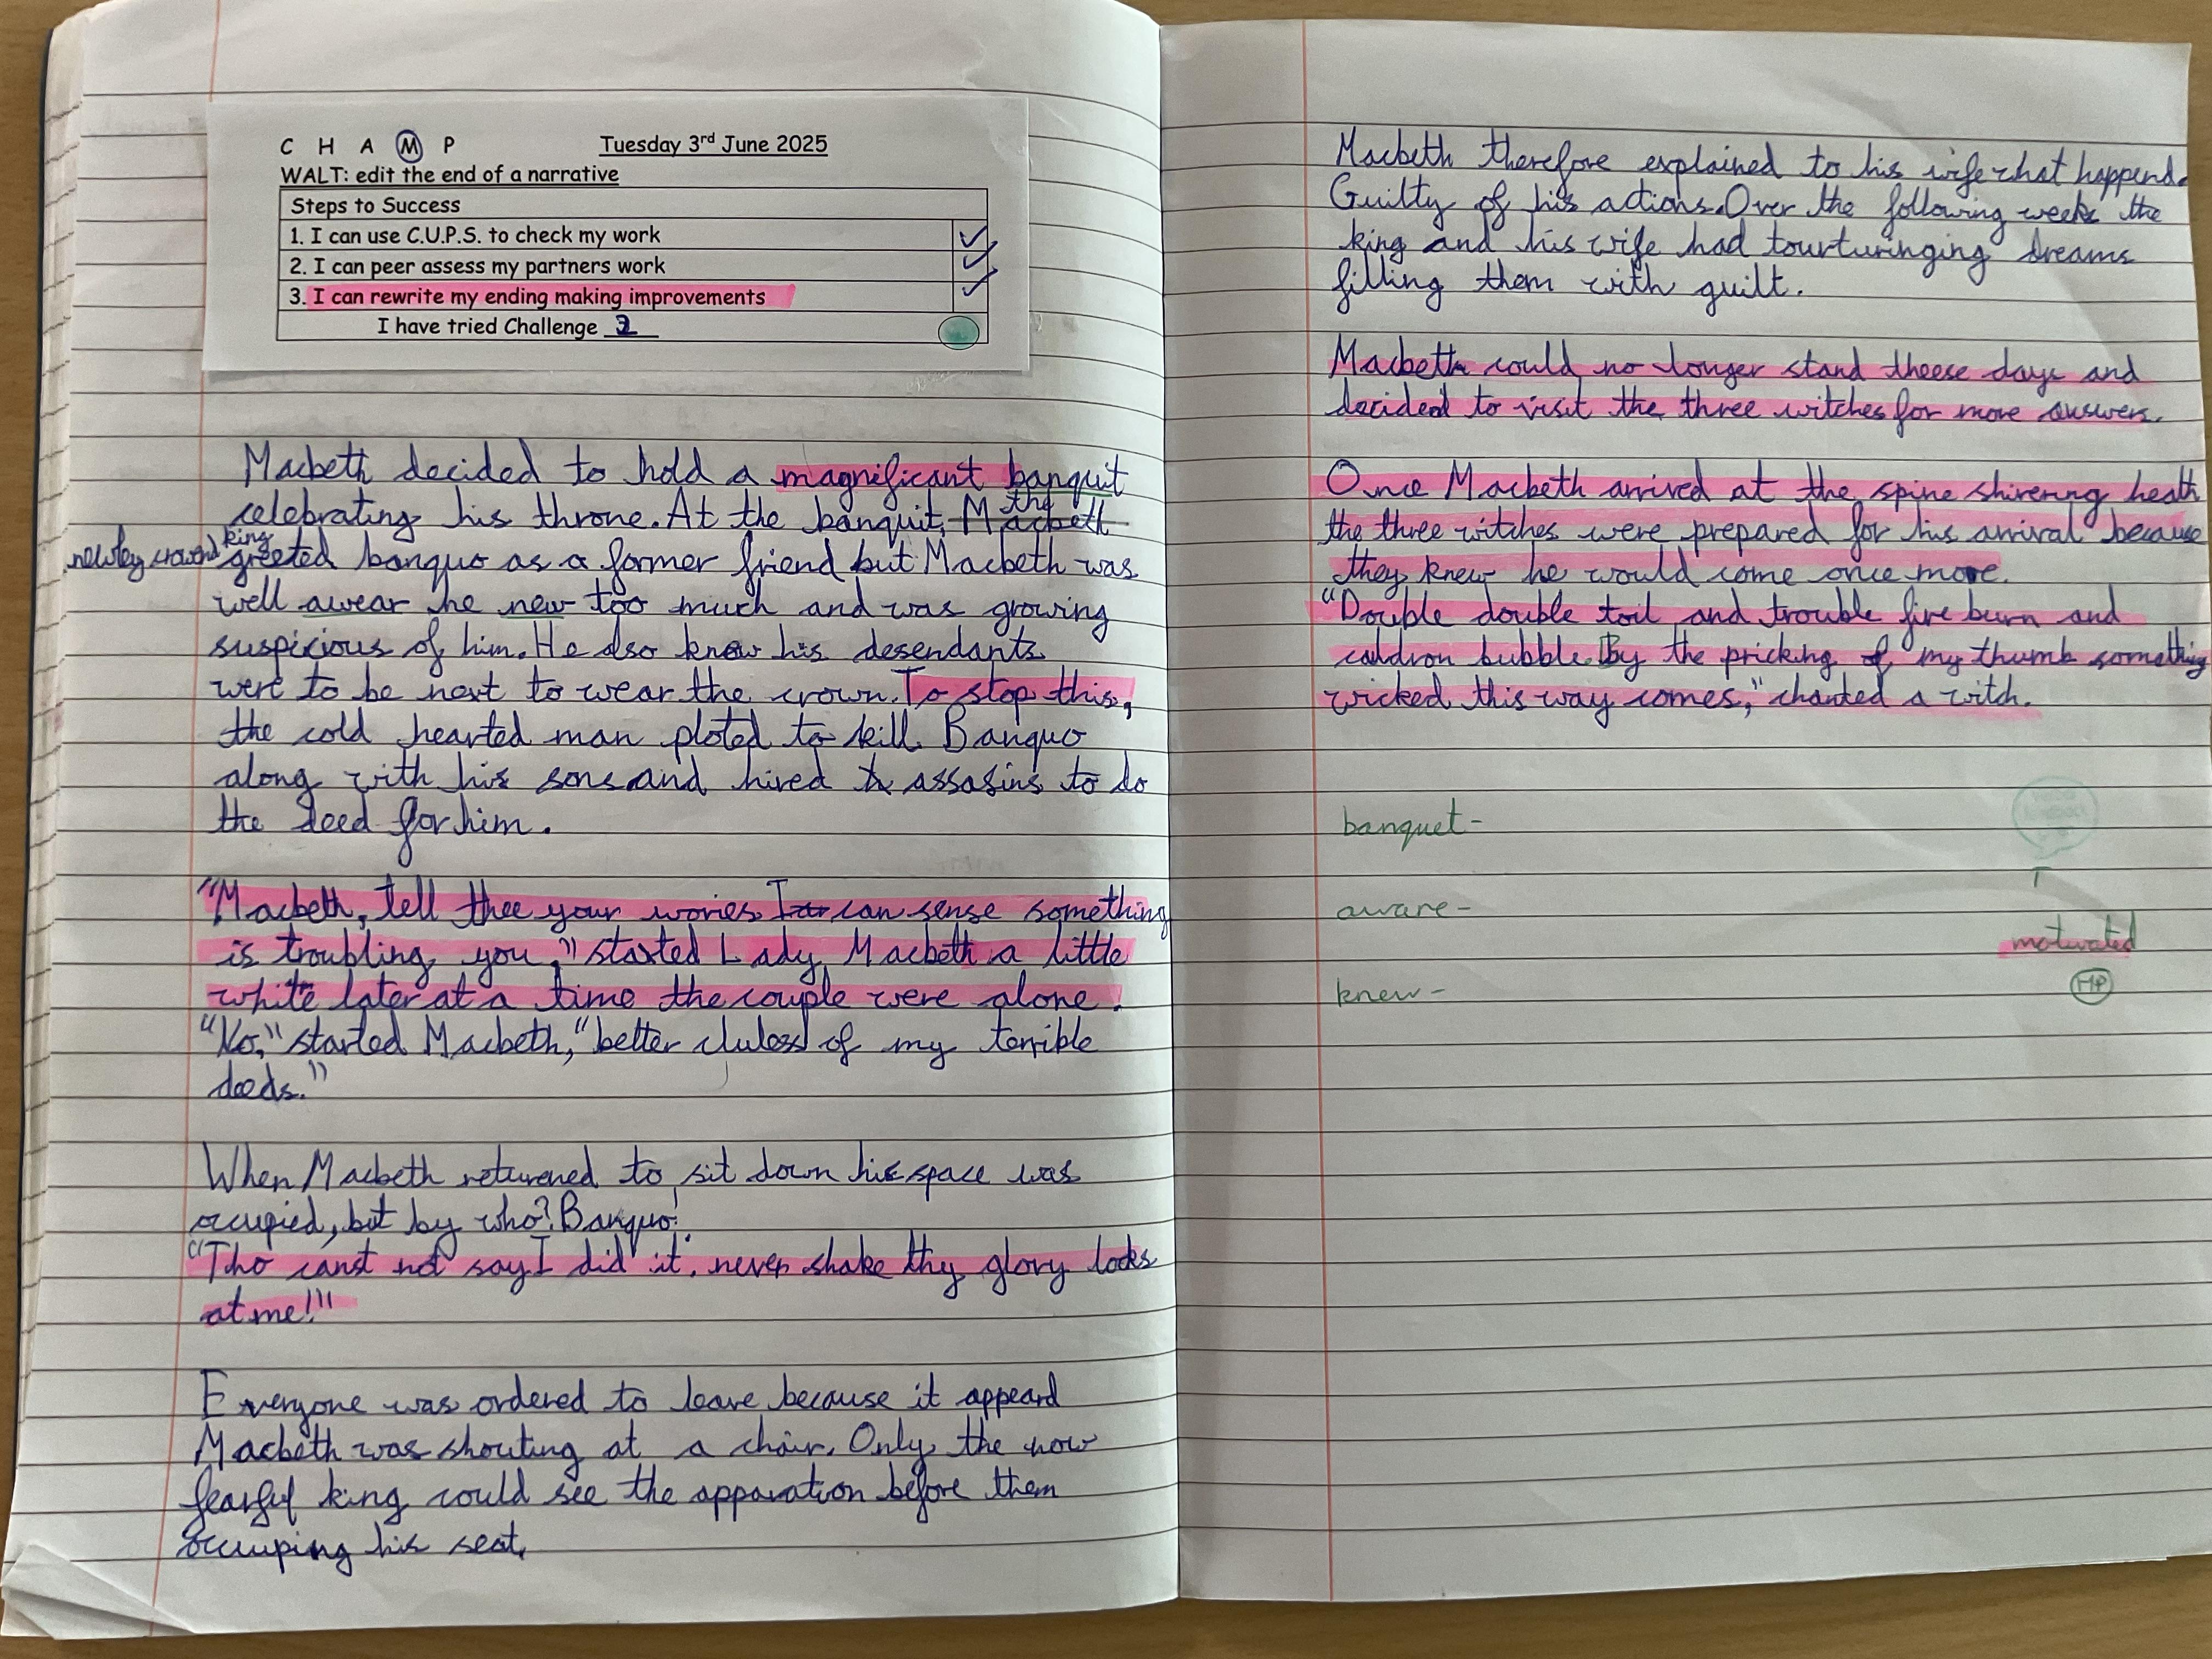 C H A M P Tuesday 3rd June 2025
WALT: edit the end of a narrative
Steps to Success
1. I can use C.U.P.S. to check my work
2. I can peer assess my partners work
3. I can rewrite my ending making improvements
I have tried Challenge
Macbeth decided to hold a magnificant banquit
celebrating his throne. At the banquit, Macbeth the
newley crownd king greeted banquo as a former friend but Macbeth was
well awear he new too much and was growing
suspicious of him. He also know his desendants
were to be next to wear the crown. To stop this,
the cold hearted man ploted to kill Banquo
along with his sons and hired assasins to do
the deed for him.
"Macbeth, tell thee your wories. I can sense something
is troubling you," started Lady Macbeth a little
white later at a time the couple were alone.
"No," started Macbeth, "better cluless of my terrible
deeds."
When Macbeth returened to sit down his space was
occupied, but by who? Banquo!
"Tho canst not say I did it. never shake thy glory locks
at me!"
Everyone was ordered to leave because it appeard
Macbeth was shouting at a chair. Only the now
fearful king could see the apparation before them
occuping his seat.
Macbeth therefore explained to his wife what happend.
Guilty of his actions. Over the following weeks the
king and his wife had tourturinging dreams
filling them with guilt.
Macbeth could no longer stand theese days and
decided to visit the three witches for more answers.
Once Macbeth arrived at the spine shivering heath
the three witches were prepared for his arrival because
they knew he would come once more.
"Double double toil and trouble fire burn and
culdron bubble. By the pricking of my thumb something
wicked this way comes," chanted a witch.
banquet-
aware-
motivated
knew-
MP